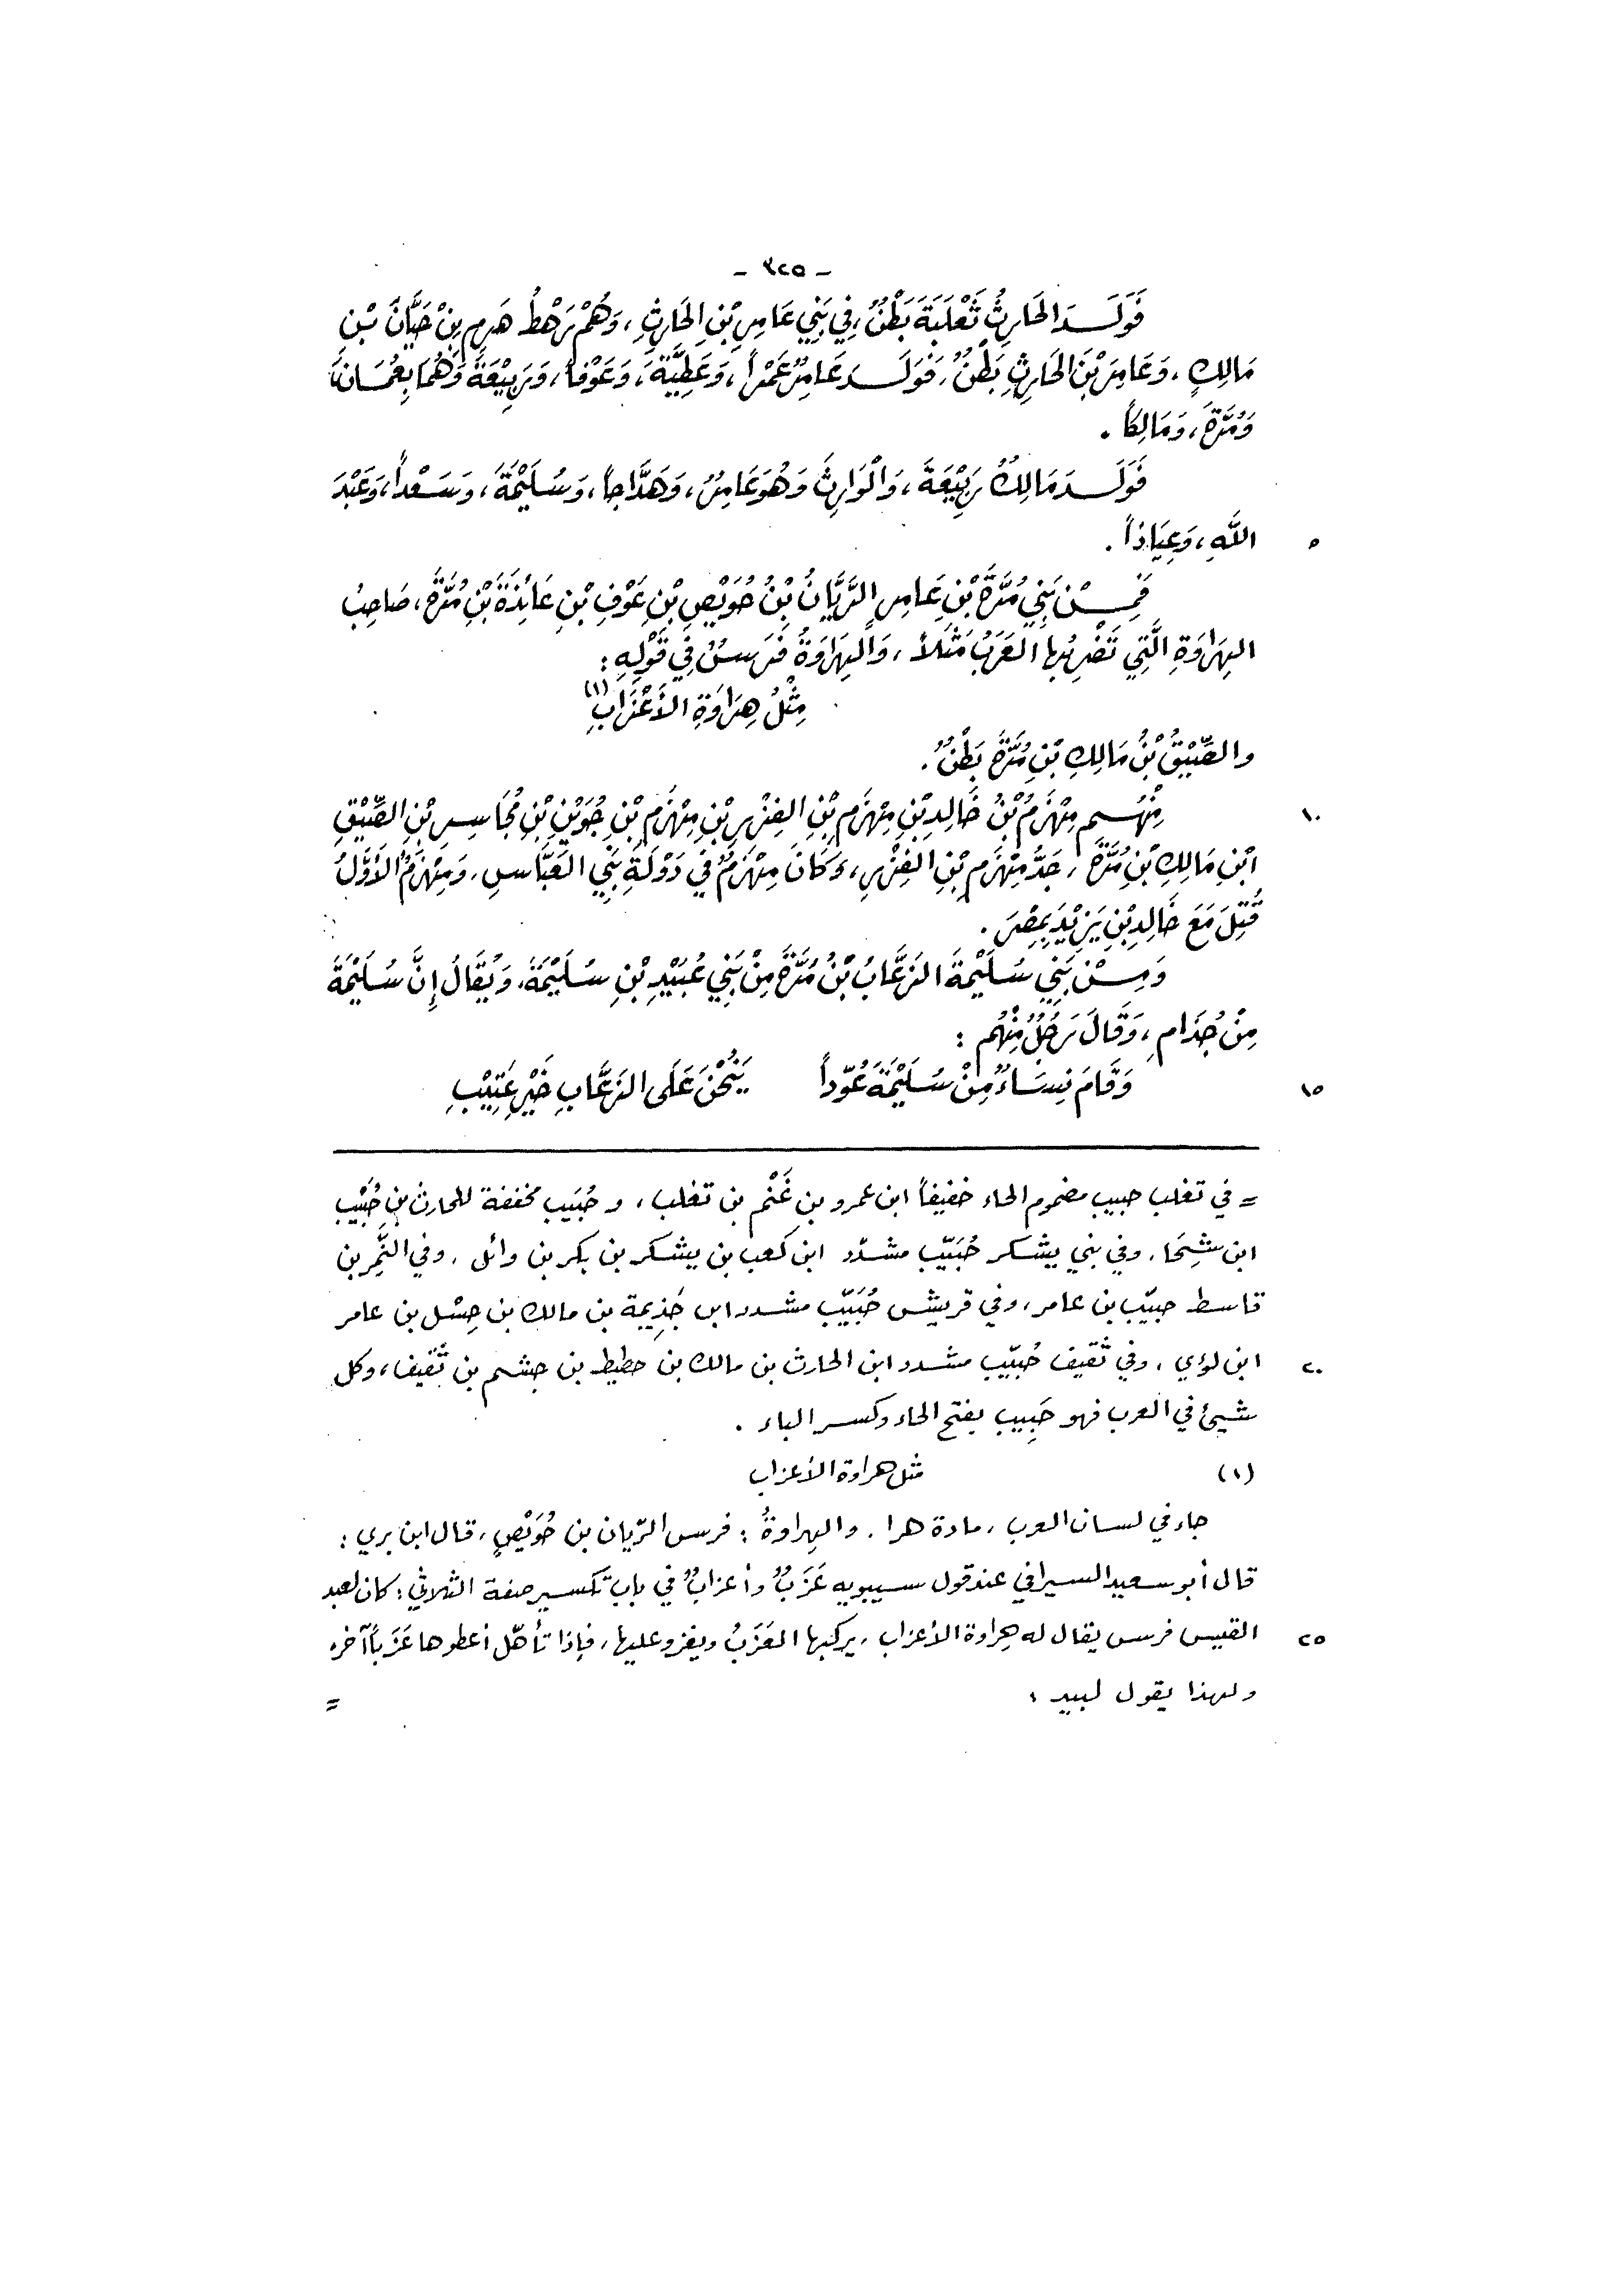 - ٣٢٥ -
فَوَلَدَ الحَارِثُ ثَعْلَبَةَ بَطْنٌ، فِي بَنِي عَامِرِ بْنِ الحَارِثِ، وَهُمْ رَهْطُ هَرِمِ بْنِ حَيَّانَ بْنِ
مَالِكٍ، وَعَامِرَ بْنَ الحَارِثِ بَطْنٌ، فَوَلَدَ عَامِرٌ عَمْراً، وَعَطِيَّةَ، وَعَوْفاً، وَرَبِيْعَةَ وَهُمَا بِعُمَانَ،
وَمُرَّةَ، وَمَالِكاً.
فَوَلَدَ مَالِكٌ رَبِيْعَةَ، وَالْوَارِثَ وَهُوَ عَامِرٌ، وَهَدَّاجاً، وَسُلَيْمَةَ، وَسَعْداً، وَعَبْدَ
اللَّهِ، وَعِيَاذاً. ٥
فَمِنْ بَنِي مُرَّةَ بْنِ عَامِرٍ الرَّيَّانُ بْنُ حُوَيْصِ بْنِ عَوْفِ بْنِ عَائِذَةَ بْنِ مُرَّةَ، صَاحِبُ
الهِرَاوَةِ الَّتِي تَضْرِبُ بِها العَرَبُ مَثَلاً، وَالهِرَاوَةُ فَرَسٌ فِي قَوْلِهِ:
مِثْلُ هِرَاوَةِ الأَعْزَابِ (١)
والصِّيْقُ بْنُ مَالِكِ بْنِ مُرَّةَ بَطْنٌ.
مِنْهُم مِهْزَمُ بْنُ خَالِدِ بْنِ مِهْزَمِ بْنِ الفِزْرِ بْنِ مِهْزَمِ بْنِ جُوَيْنِ بْنِ مُجَاسِرِ بْنِ الصِّيْقِ ١٠
ابْنِ مَالِكِ بْنِ مُرَّةَ، جَدُّ مِهْزَمِ بْنِ الفِزْرِ، وَكَانَ مِهْزَمٌ فِي دَوْلَةِ بَنِي العَبَّاسِ، وَمِهْزَمٌ الأَوَّلُ
قُتِلَ مَعَ خَالِدِ بْنِ يَزِيْدَ بِمِصْرَ.
وَمِنْ بَنِي سُلَيْمَةَ الزَعَّابُ بْنُ مُرَّةَ مِنْ بَنِي عُبَيْدِ بْنِ سُلَيْمَةَ، وَيُقَالُ إِنَّ سُلَيْمَةَ
مِنْ جُذَامِ، وَقَالَ رَجُلٌ مِنْهُم:
وَقَامَ نِسَاءٌ مِنْ سُلَيْمَةَ عُوّداً يَنُحْنَ عَلَى الزَعَّابِ خَيْرِ عَتِيْبِ ١٥
= في تغلب حبيب مضموم الحاء خفيفاً ابن عمرو بن غَنْم بن تغلب، وحُبَيب مخففة للحارث بن حُبَيْب
ابن شِحَا، وفي بني يشكر حُبَيّب مشدّد ابن كعب بن يشكر بن بكر بن وائل، وفي النَّمِر بن
قاسط حبيّب بن عامر، وفي قريش حُبَيّب مشدد ابن جَذِيمة بن مالك بن حِسْل بن عامر
ابن لؤي، وفي ثَقيف حُبيّب مشدد ابن الحارث بن مالك بن حطيط بن جشم بن ثَقيف، وكل ٢٠
شيئ في العرب فهو حَبِيب بفتح الحاء وكسر الباء.
(١) مثل هراوة الأعزاب
جاء في لسان العرب، مادة هرا. والهراوةُ: فرس الرّيان بن حُوَيْصٍ، قال ابن بري:
قال أبو سعيد السيرافي عند قول سيبويه عَزَبٌ وأعزابٌ في باب تكسير صفة الثلاثي: كان لعبد
القيس فرس يقال له هِراوة الأعزاب، يركبها العَزَبُ ويغزو عليها، فإذا تأهّل أعطوها عَزَباً آخر، ٢٥
ولهذا يقول لبيد: =